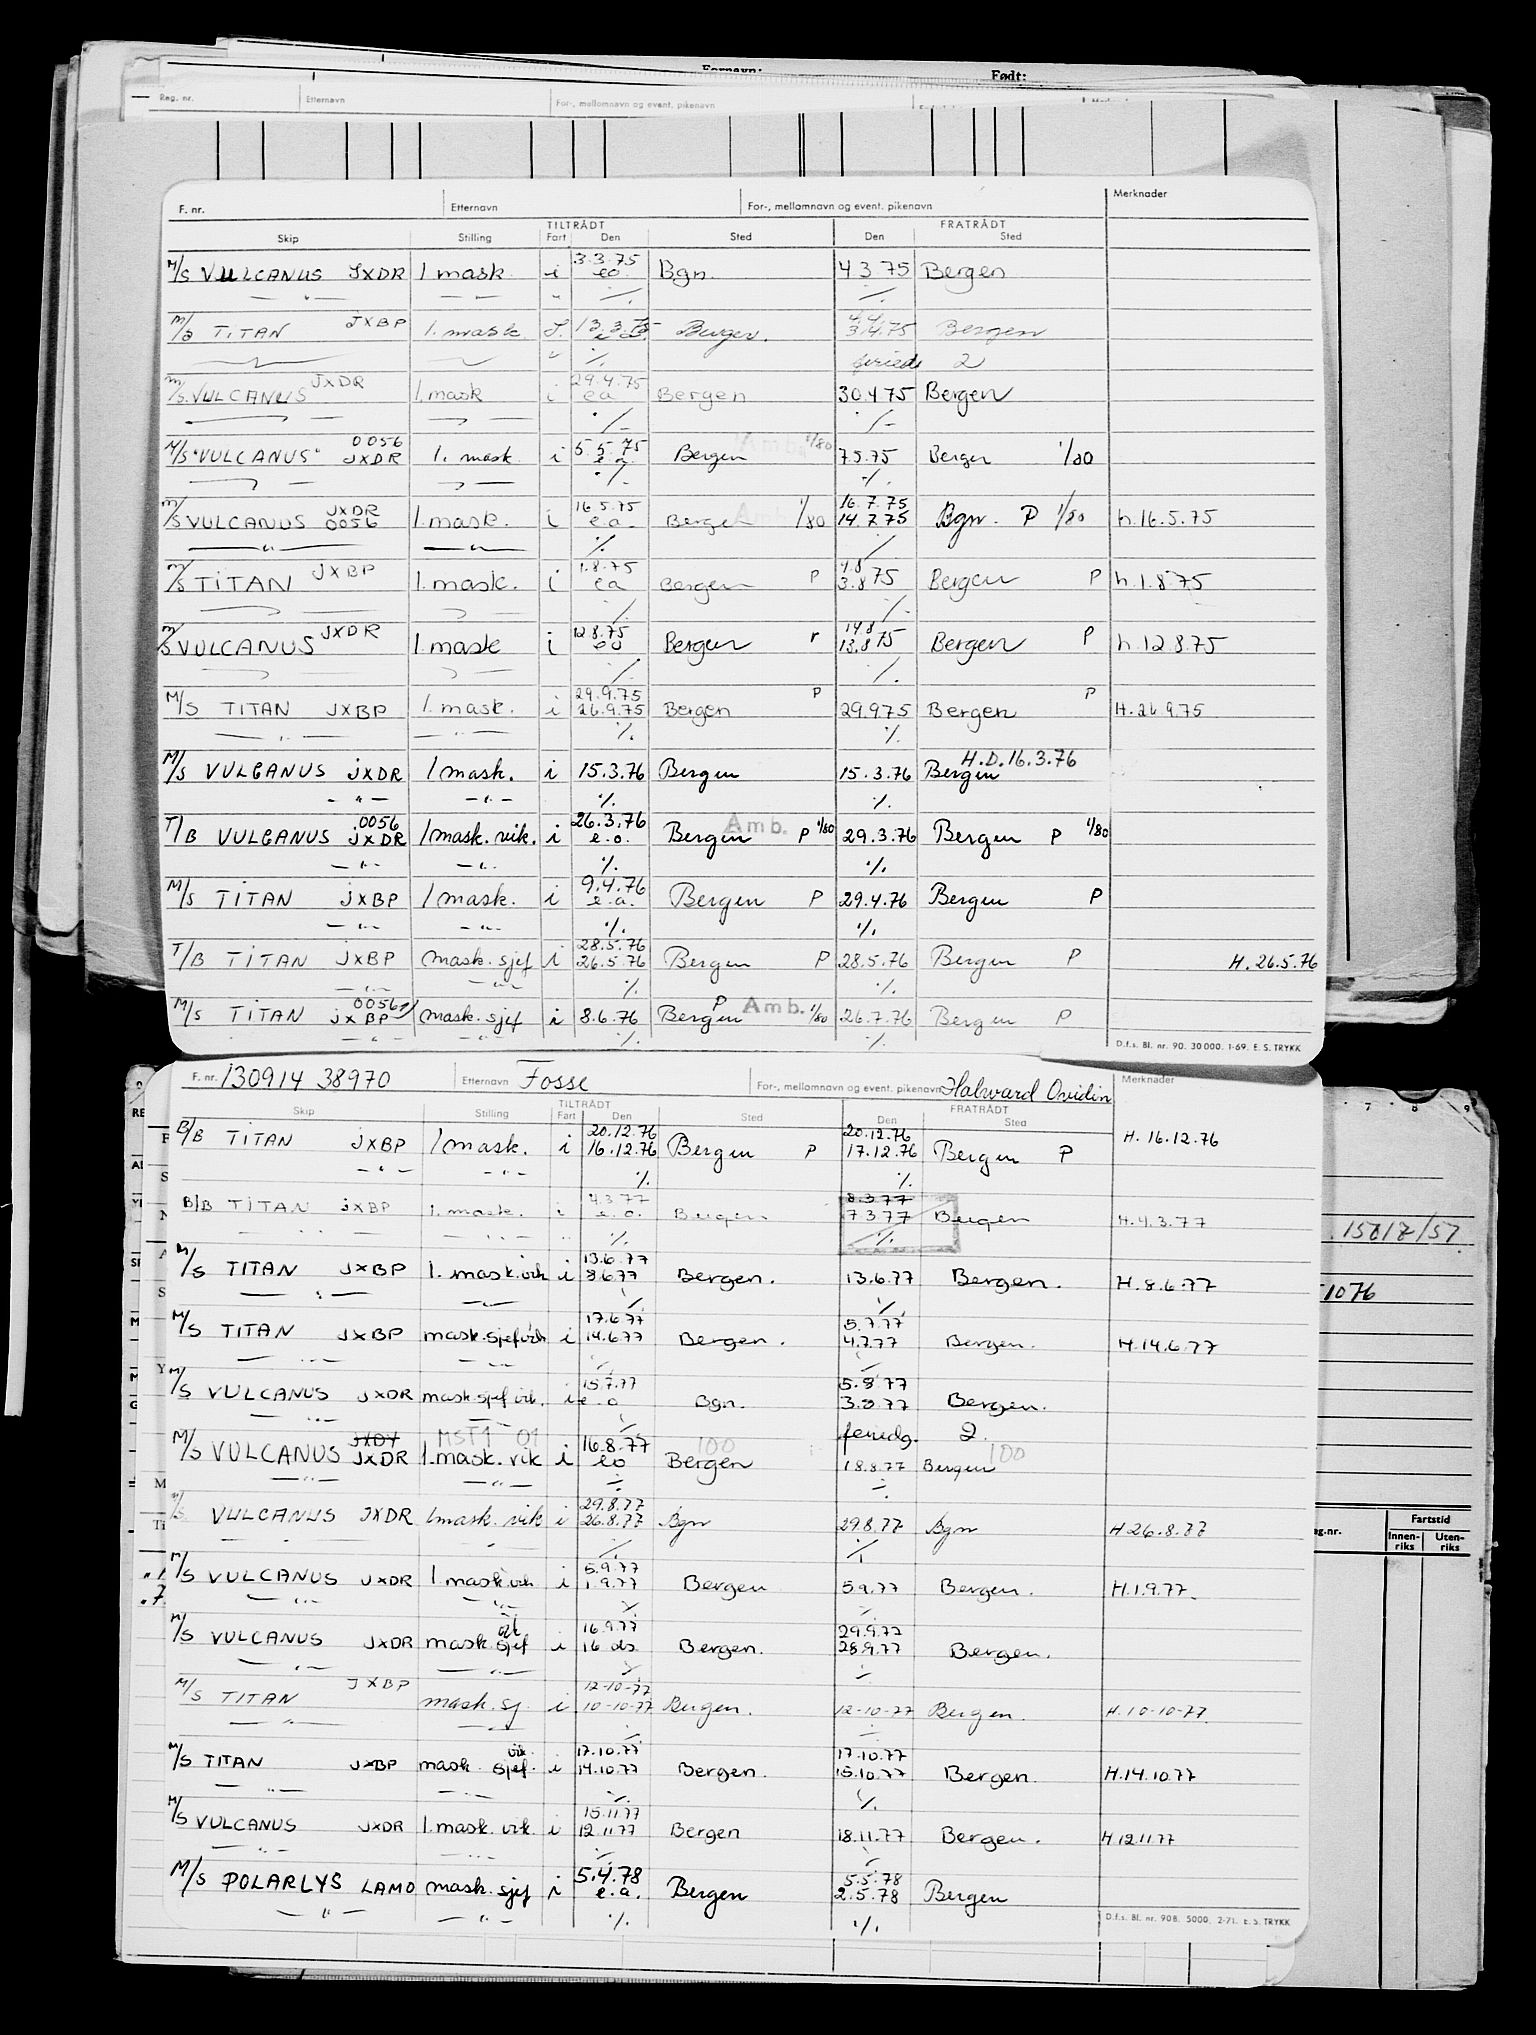 Fornavn: Født:
Reg. nr. Etternavn For-, mellomnavn og event. pikenavn
F. nr. Etternavn For-, mellomnavn og event. pikenavn Merknader
TILTRÅDT FRATRÅDT
Skip Stilling Fart Den Sted Den Sted
3.3.75
M/S VULCANUS JXDR 1 mask. i eo. Bgn. 4 3 75 Bergen
— " — — " — " ./. ./.
M/S TITAN JXBP 1. mask. 13.3.75 Bergen. 3.4.75 Bergen
./. 2
29.4.75
M/S. VULCANUS JXDR 1. mask i ea Bergen 30.4 75 Bergen
./. ./.
0056 5.5.75 Amb. 1/80
M/S "VULCANUS" JXDR 1. mask i e.a. Bergen 7.5.75 Bergen 1/80
./. ./.
JXDR 16.5.75 16.7.75
M/S VULCANUS 0056 1. mask. i e.a. Bergen 1/80 14.7.75 Bgn. P 1/80 h.16.5.75
— " — — " — ./. ./.
JXBP 1.8.75 4.8
M/S TITAN 1. mask. i ea Bergen P 3.8 75 Bergen P h.1.8.75
./. ./.
JXDR 12.8.75 14.8
M/S VULCANUS 1. mask i eo Bergen P 13.8 75 Bergen P h.12.8.75
./. ./.
29.9.75 P P
M/S TITAN JXBP 1. mask. i 26.9.75 Bergen 29.9.75 Bergen H.26.9.75
— " — — " — ./. ./.
H.D.16.3.76
M/S VULCANUS JXDR 1 mask. i 15.3.76 Bergen 15.3.76 Bergen
— " — — " — ./. ./.
0056 26.3.76 Amb.
T/B VULCANUS JXDR 1 mask. vik. i e.o. Bergen P 1/80 29.3.76 Bergen P 1/80
— " — — " — ./. ./.
9.4.76
M/S TITAN JXBP 1 mask. i e.a. Bergen P 29.4.76 Bergen P
— " — — " — ./. ./.
28.5.76
T/B TITAN JXBP mask. sjef i 26.5.76 Bergen P 28.5.76 Bergen P H. 26.5.76
— " — — " — ./. ./.
0056 P Amb.
M/S TITAN JXBP mask. sjef i 8.6.76 Bergen 1/80 26.7.76 Bergen P
— " — — " — ./. ./.
D.f.s. Bl. nr. 90. 30 000. 1-69. E. S. TRYKK
F. nr. 130914 38970 Etternavn Fosse For-, mellomnavn og event. pikenavn Halvard Ovidin Merknader
TILTRÅDT FRATRÅDT
Skip Stilling Fart Den Sted Den Sted
20.12.76 20.12.76
B/B TITAN JXBP 1 mask. i 16.12.76 Bergen P 17.12.76 Bergen P H. 16.12.76
— " — — " — ./. ./.
4.3.77 8.3.77
B/B TITAN JXBP 1. mask. i e.o. Bergen 7.3.77 Bergen H.4.3.77
./. ./.
13.6.77
M/S TITAN JXBP 1. mask. vik i 8.6.77 Bergen. 13.6.77 Bergen. H.8.6.77
— " — — " — ./. ./.
17.6.77 5.7.77
M/S TITAN JXBP mask. sjef vik i 14.6.77 Bergen. 4.7.77 Bergen. H.14.6.77
— " — — " — ./. ./.
15.7.77 5.8.77
M/S VULCANUS JXDR mask. sjef vik. i e.o Bgn. 3.8.77 Bergen.
— " — — " — ./. 2.
MST1 01 16.8.77 100 100
M/S VULCANUS JXDR 1. mask. vik i eo Bergen 18.8.77 Bergen
— " — — " — ./. ./.
29.8.77
M/S VULCANUS JXDR 1 mask. vik i 26.8.77 Bgn 29.8.77 Bgn H 26.8.77
./. ./.
5.9.77
M/S VULCANUS JXDR 1 mask vik i 1.9.77 Bergen 5.9.77 Bergen. H.1.9.77.
— " — — " — ./. ./.
vik 16.9.77 29.9.77
M/S VULCANUS JXDR mask. sjef i 16 ds Bergen. 28.9.77 Bergen.
— " — — " — ./. ./.
JXBP 12-10-77
M/S TITAN mask. sj. i 10-10-77 Bergen. 12-10-77 Bergen. H.10-10-77.
— " — — " — ./. ./.
vik. 17.10.77 17.10.77
M/S TITAN JXBP mask sjef. i 14.10.77 Bergen. 15.10.77 Bergen. H.14.10.77
— " — — " — ./. ./.
15.11.77
M/S VULCANUS JXDR 1. mask. vik. i 12.11.77 Bergen 18.11.77 Bergen. H.12.11.77
— " — — " — ./. ./.
5.4.78 5.5.78
M/S POLARLYS LAMO mask. sjef i e.a. Bergen 2.5.78 Bergen
— " — — " — ./. ./.
D.f.s. Bl. nr. 908. 5000. 2-71. E. S. TRYKK
7 8 9
1076
Fartstid
Innen-riks Uten-riks